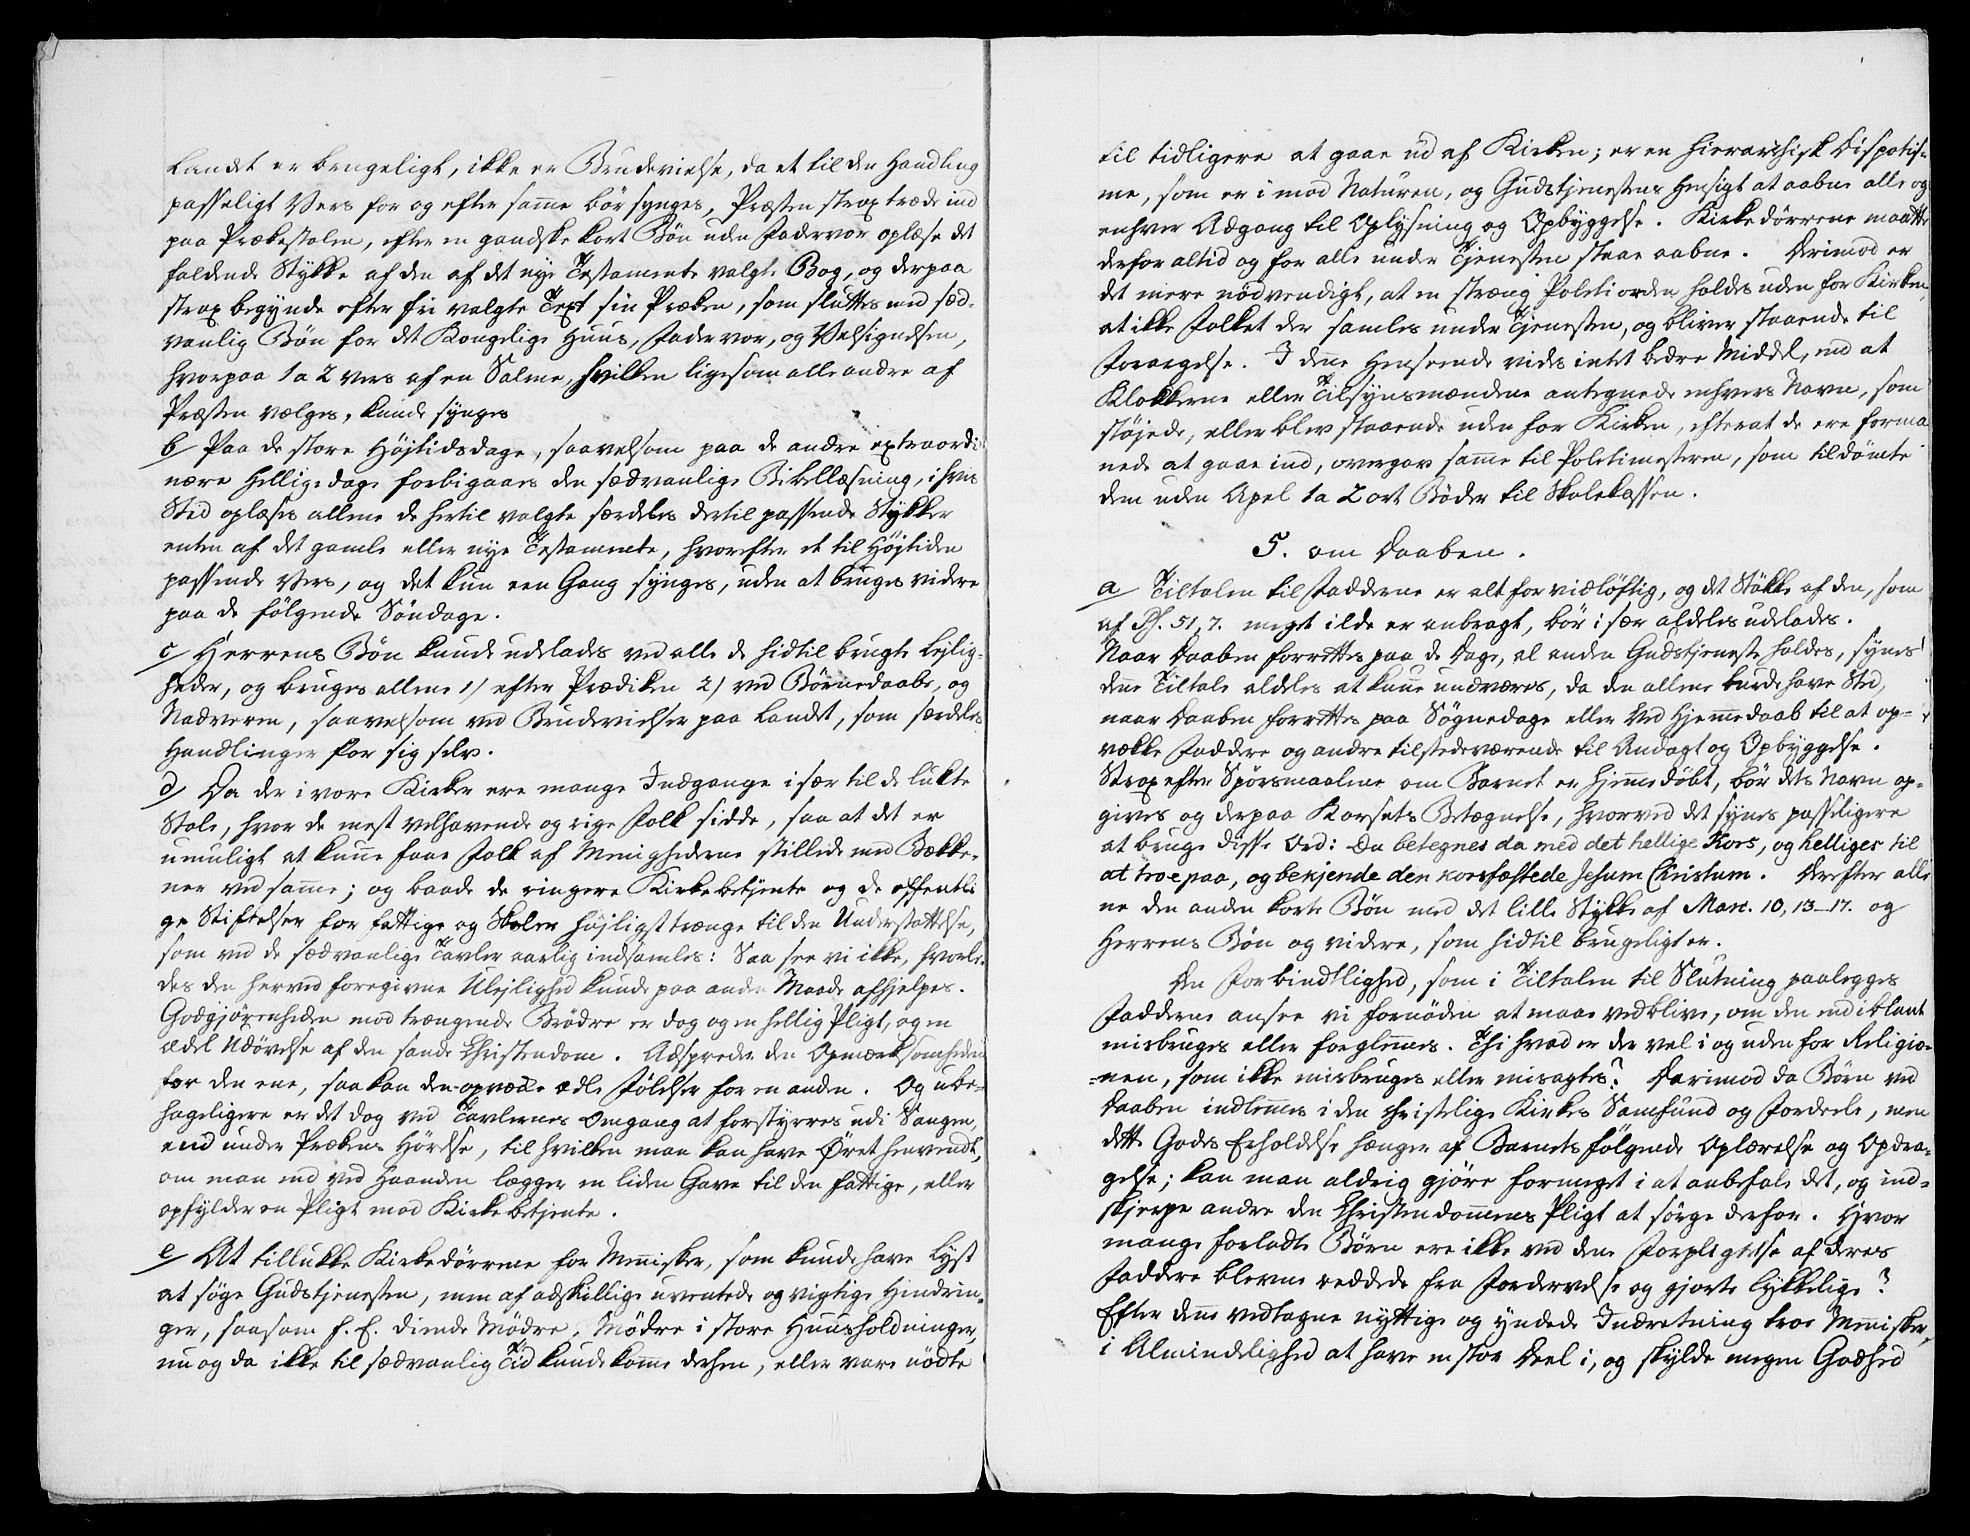 Landet er brugeligt, ikke er Brudevielse, da et til den Handling
passeligt Vers for og efter samme bør synges, Præsten strax træde ind
paa Prækestolen, efter en gandske kort Bøn uden Fadervor oplæse det
faldende Stykke af den af det nye Testamente valgte Bog, og derpaa
strax begynde efter fri valgte Text sin Præken, som sluttes med sæd-
vanlig Bøn for det Kongelige Huus, Fadervor, og Velsignelsen,
hvorpaa 1 a 2 vers af en Salme, hvilken ligesom alle andre af
Præsten vælges, kunde synges
b/ Paa de store Højtidsdage, saavelsom paa de andre extraordi-
nære Helligedage forbigaaes den sædvanlige Bibellæsning, i hvis
Sted oplæses allene de hertil valgte særdeles dertil passende Stykker
enten af det gamle eller nye Testamente, hvorefter et til Højtiden
passende Vers, og det kun een Gang synges, uden at bruges videre
paa de følgende Søndage.
c/ Herrens Bøn kunde udelades ved alle de hidtil brugte Lejlig-
heder, og bruges allene 1/ efter Prædiken 2/ ved Børnedaabe, og
Nadveren, saavelsom ved Brudevielser paa Landet, som særdeles
Handlinger for sig selv.
d/ Da der i vore Kirker ere mange Indgange især til de lukte
Stole, hvor de mest velhavende og rige Folk sidde, saa at det er
umuligt at kunne faae Folk af Menighederne stillede med Bække-
ner ved samme; og baade de ringere Kirkebetjente og de offentli
ge Stiftelser for fattige og Skoler højligst trænge til den Understøttelse,
som ved de sædvanlige Tavler aarlig indsamles: Saa see vi ikke, hvorle-
des den herved foregivne Ulejlighed kunde paa anden Maade afhjelpes.
Godgjørenheden mod trængende Brødre er dog og en hellig Pligt, og en
ædel Udøvelse af den sande Christendom. Adspreder den Opmærksomheden
for den ene, saa kan den opvække ædle Følelser for en anden. Og ube-
hageligere er det dog ved Tavlernes Omgang at forstyrres udi Sangen,
end under Prækens Hørelse, til hvilken man kan have Øret henvendt,
om man end ved Haanden lægger en liden Gave til den fattige, eller
opfylder en Pligt mod Kirkebetjente.
e/ At tillukke Kirkedørrene for Mennisker, som kunde have Lyst
at søge Gudstjenesten, men af adskillige uventede og vigtige Hindrin-
ger, saasom f. E. diende Mødre, Mødre i store Huusholdninger,
nu og da ikke til sædvanlig Tid kunde komme derhen, eller vare nødte
til tidligere at gaae ud af Kirken; er en hierarchisk Dispotis-
me, som er imod Naturen, og Gudstjenestens Hensigt at aabne alle og
enhver Adgang til Oplysning og Opbyggelse. Kirkedørrene maatte
derfor altid og for alle under Tjenesten staae aabne. Derimod er
det mere nødvendigt, at en stræng Politi orden holdes uden for Kirken,
at ikke Folket der samles under Tjenesten, og bliver staaende til
Forargelse. I denne Henseende vides intet bedre Middel, end at
Klokkerne eller Tilsynsmændene antegnede enhvers Navn, som
støjede, eller blev staaende uden for Kirken, efterat de ere forma
nede at gaae ind, overgav samme til Politimesteren, som tildømte
dem uden Apel 1 a 2 ort Bøder til Skolekassen.
5. om Daaben.
a/ Tiltalen til Fadderne er alt for vidløftig, og det Stökke af den, som
af Ps. 51,7. meget ilde er anbragt, bør især aldeles udelades.
Naar Daaben forrettes paa de Dage, al anden Gudstjeneste holdes, synes
denne Tiltale aldeles at kunne undværes, da den allene burde have Sted,
naar Daaben forrettes paa Søgnedage eller Ved Hjemmedaab til at op-
vække Faddere og andre tilstedeværende til Andagt og Opbyggelse.
Strax efter Spørsmaalene om Barnet er hjemme døbt, bør dets Navn op-
gives og derpaa Korsets Betægnelse, hvorved det synes passeligere
at bruge disse Ord: Du betegnes da med det hellige Kors, og helliges til
at troe paa, og bekjende den korsfæstede Jesum Christum. Derefter alle
ne den anden korte Bøn med det lille Stykke af Marc. 10, 13-17. og
Herrens Bøn og videre, som hidtil brugeligt er.
Den Forbindtlighed, som i Tiltalen til Slutning paalegges
Fadderne ansee vi fornøden at maae vedblive, om den end iblant
misbruges eller forglemmes. Thi hvad er der vel i og uden for Religio-
-nen, som ikke misbruges eller misagtes? Derimod da Børn ved
Daaben indlemmes i den christelige Kirkes Samfund og Fordeele, men
dette Godes Erholdelse hænger af Barnets følgende Oplærelse og Opdra-
gelse; kan man aldrig gjöre formeget i at anbefale det, og ind-
skjerpe andre den Christendommens Pligt at sörge derfor. Hvor
mange forladte Børn ere ikke ved denne Forpligtelse af deres
Faddere blevne reddede fra Fordervelse og gjorte lykkelige?
Efter denne vedtagne nyttige og yndede Indretning troe Mennisker
i Almindelighed at have en stor Deel i, og skylde megen Godhed